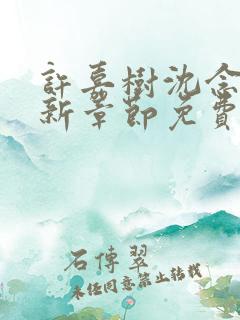 許嘉樹沈念
新章節免費
石傳翠
未经同意禁止转载